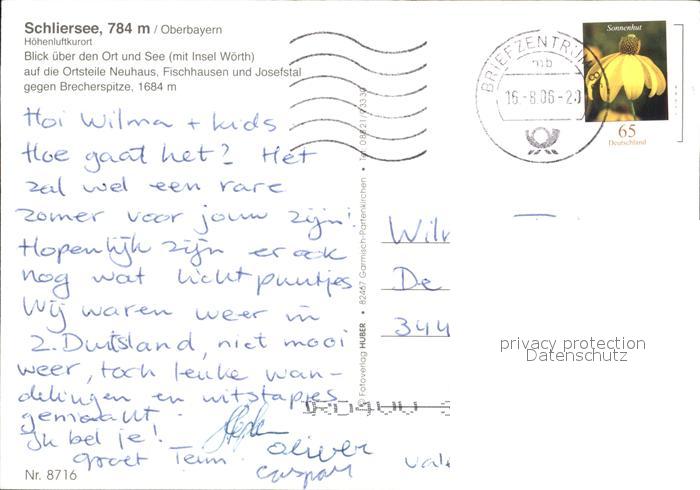 Schliersee, 784 m / Oberbayern
Höhenluftkurort
Blick über den Ort und See (mit Insel Wörth)
auf die Ortsteile Neuhaus, Fischhausen und Josefstal
gegen Brecherspitze, 1684 m
Hoi Wilma + kids
Hoe gaat het? Het
zal wel een rare
zomer voor jouw zijn!
Hopenlijk zijn er ook
nog wat lichtpuntjes
Wij waren weer in
Z. Duitsland, niet mooi
weer, toch leuke wan-
delingen en uitstapjes
gemaakt.
Ik bel je!
groet Teun
Oliver
Caspar
Nr. 8716
© Fotoverlag HUBER • 82467 Garmisch-Partenkirchen • Tel.
BRIEFZENTRUM
mb
16.-8.06-20
Sonnenhut
65
Deutschland
Wil
De
344
privacy protection
Datenschutz